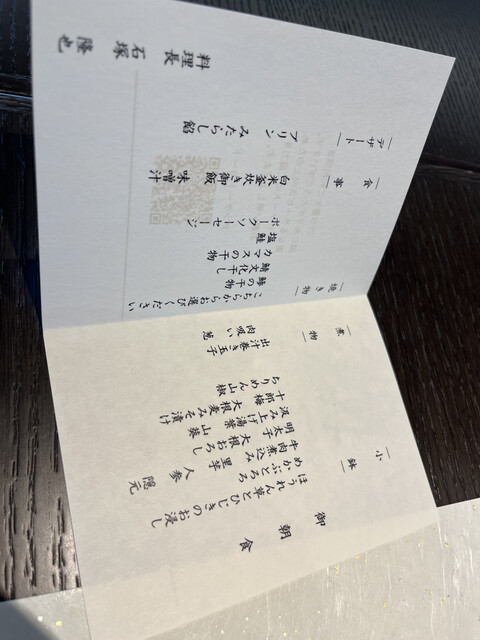 御朝食
―小鉢―
ほうれん草とひじきのお浸し
めかぶとろろ
牛肉煮込み 里芋 人参 隠元
明太子 大根おろし
汲み上げ湯葉 山葵
十郎梅 大根麦みそ漬け
ちりめん山椒
出汁巻き玉子
―煮物―
肉吸い 葱
―焼き物―
こちらからお選びください
鯵の干物
鯖文化干し
カマスの干物
塩鮭
ポークソーセージ
―食事―
白米釜炊き御飯
味噌汁
―デザート―
プリン みたらし餡
料理長 石塚隆也